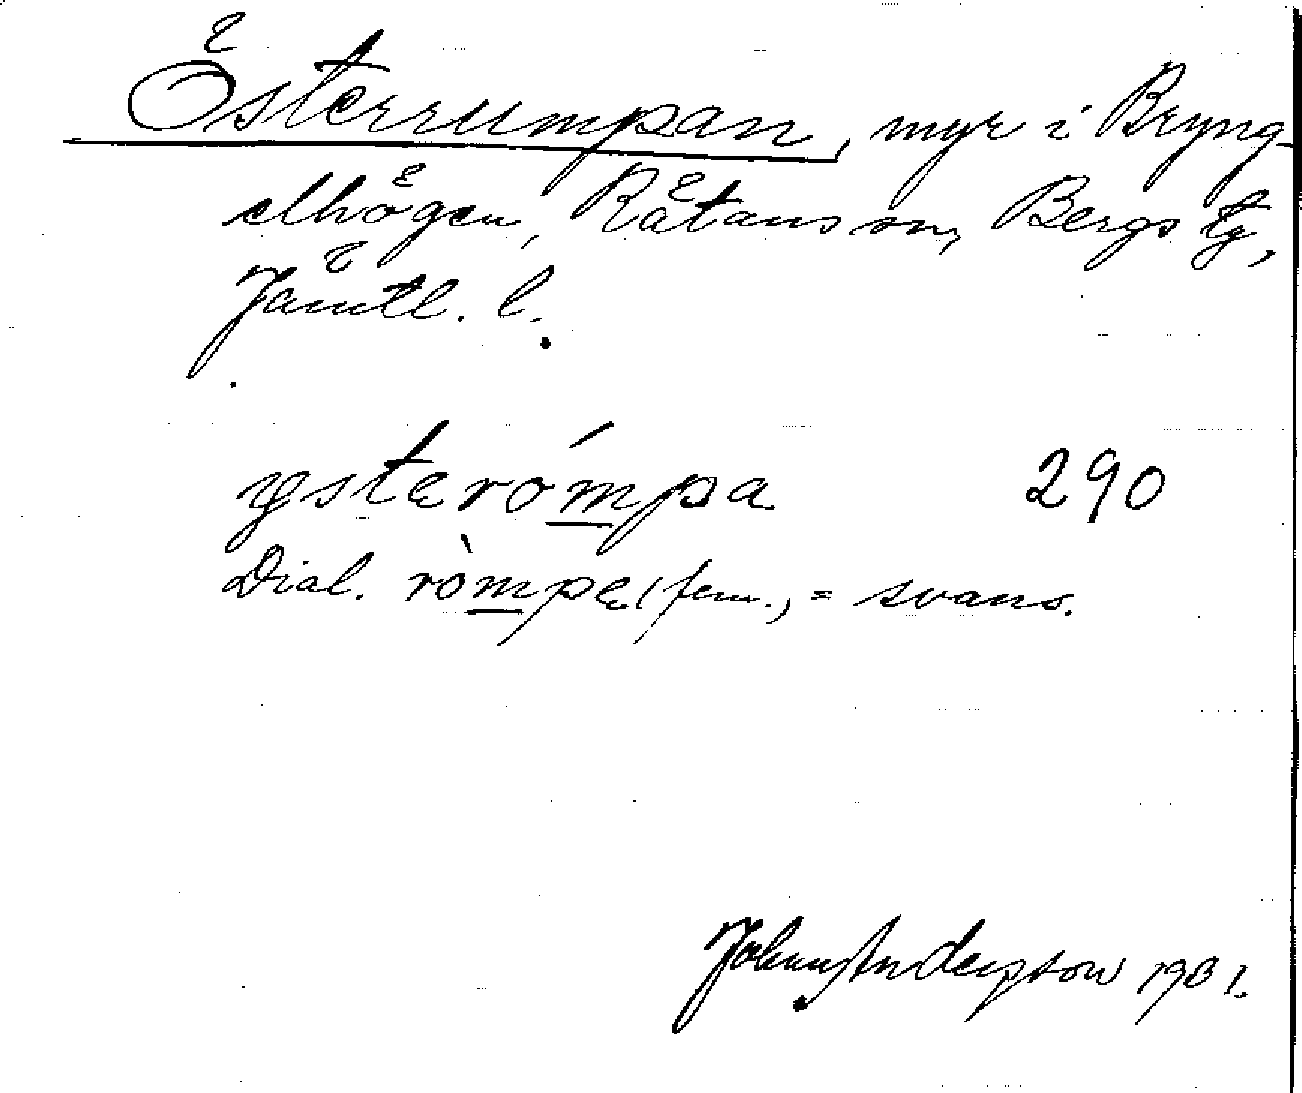 Österrumpan, myr i Bryng-
elhögen, Rätans sn, Bergs tg,
Jämtl. l.
ysterómpa 290
Dial. ròmpe (fem., = svans.
Johan Anderson 1931.